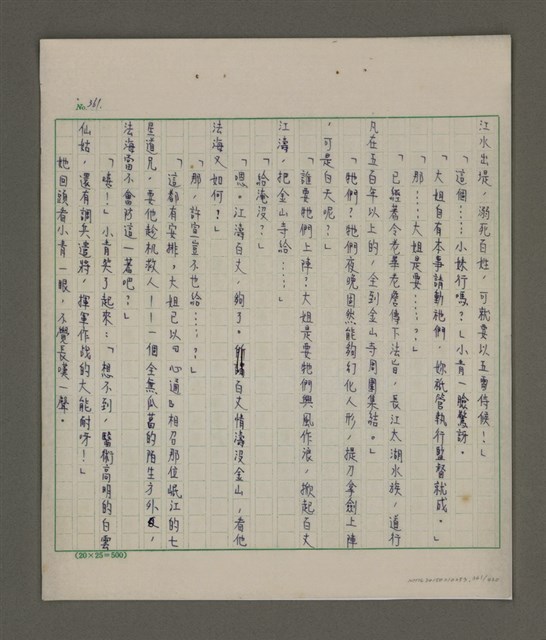 No. 361.
江水出堤,溺死百姓,可就要以五雷侍候!」
「這個……小妹行嗎?」小青一臉驚訝。
「大姐自有本事請動祂們,妳祇管執行監督就成。」
「那……大姐是要……?」
「已經著令老龜傳下法旨,長江太湖水族,道行
凡在五百年以上的,全到金山寺周圍集結。」
「牠們?牠們夜晚固然能夠幻化人形,提刀拿劍上陣
,可是白天呢?」
「誰要牠們上陣?大姐是要牠們興風作浪,掀起百丈
江濤,把金山寺給……」
「給淹沒?」
「嗯。江濤百丈,夠了。百丈情濤沒金山,看他
法海又如何?」
「那,許宣豈不也給……?」
「這都有安排,大姐已以『心通』相召那位岷江的七
星道兄,要他趁机救人!——一個全無瓜葛的陌生方外,
法海當不會防這一著吧?」
「嘻!」小青笑了起來:「想不到,醫術高明的白雲
仙姑,還有調兵遣將,揮軍作战的大能耐呀!」
她回頭看小青一眼,不覺長嘆一聲。
(20×25=500)